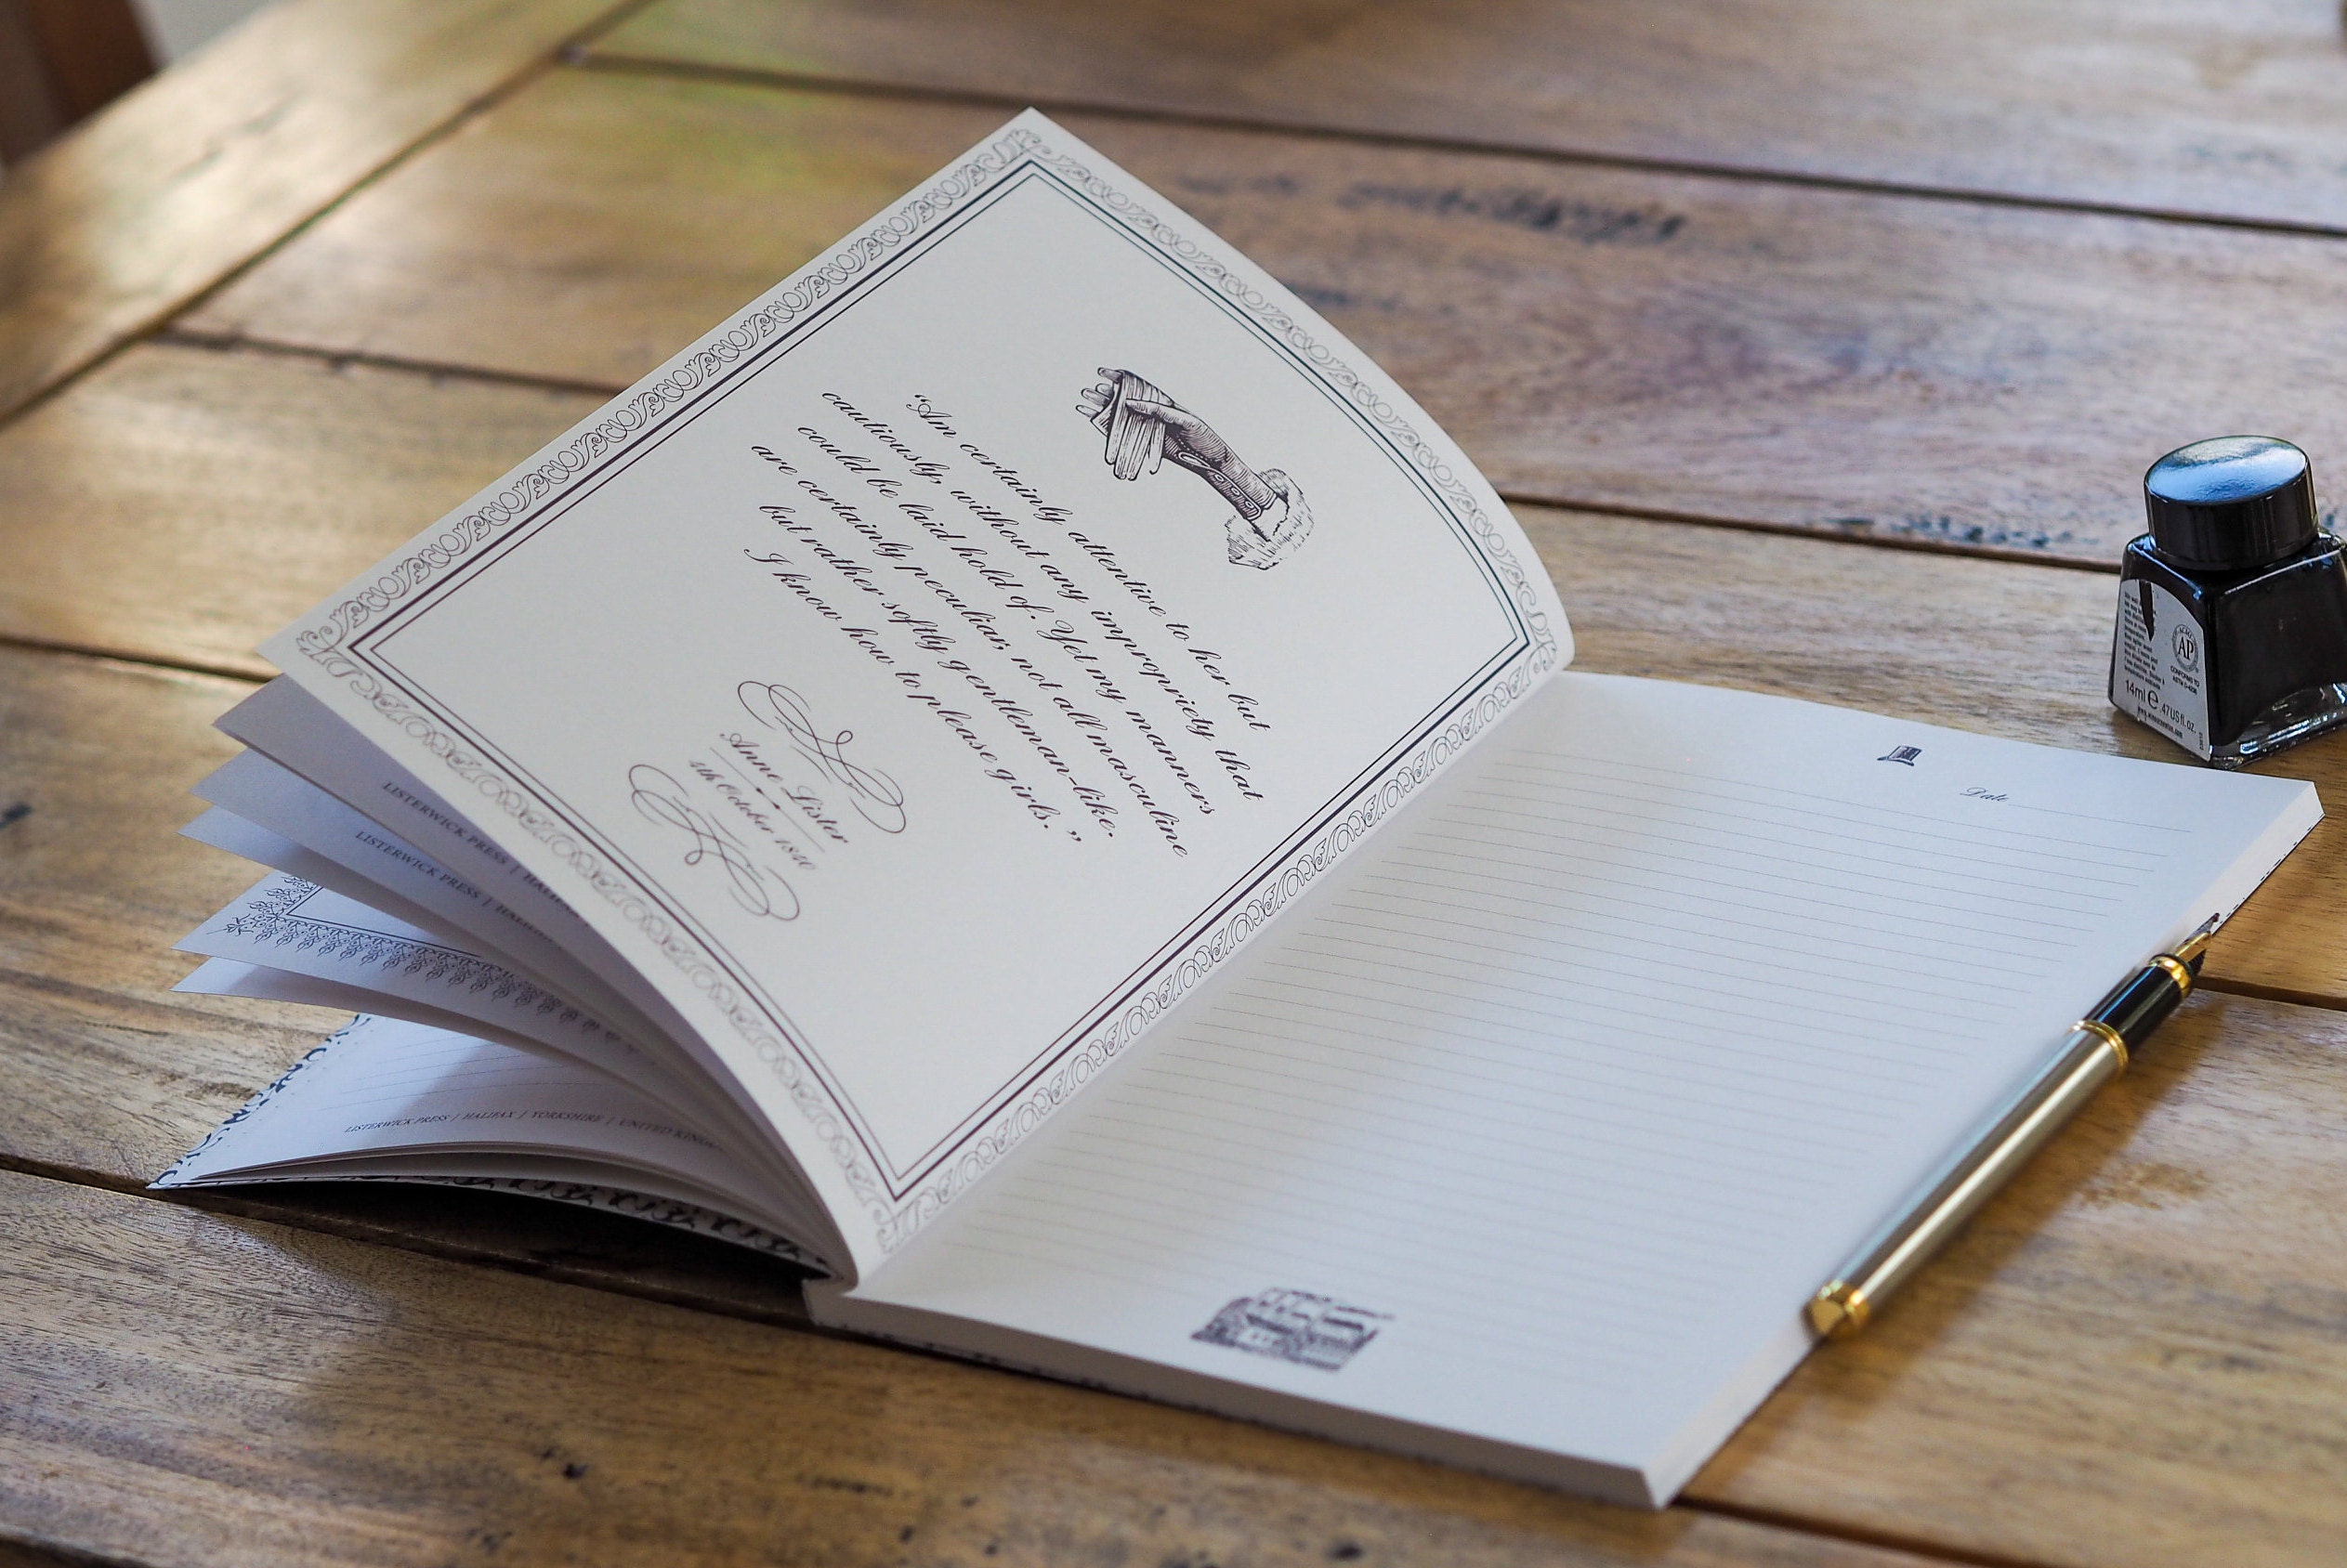 “Am certainly attentive to her but
cautiously, without any impropriety that
could be laid hold of. Yet my manners
are certainly peculiar, not all masculine
but rather softly gentleman-like.
I know how to please girls.”
Anne Lister
4th October 18
LISTERWICK PRESS | HALIFAX
LISTERWICK PRESS | HALIFAX
LISTERWICK PRESS / HALIFAX / YORKSHIRE / UNITED KINGDOM
Date
AP
CONFORMS TO
ASTM D-4236
14ml e .47US fl.oz.